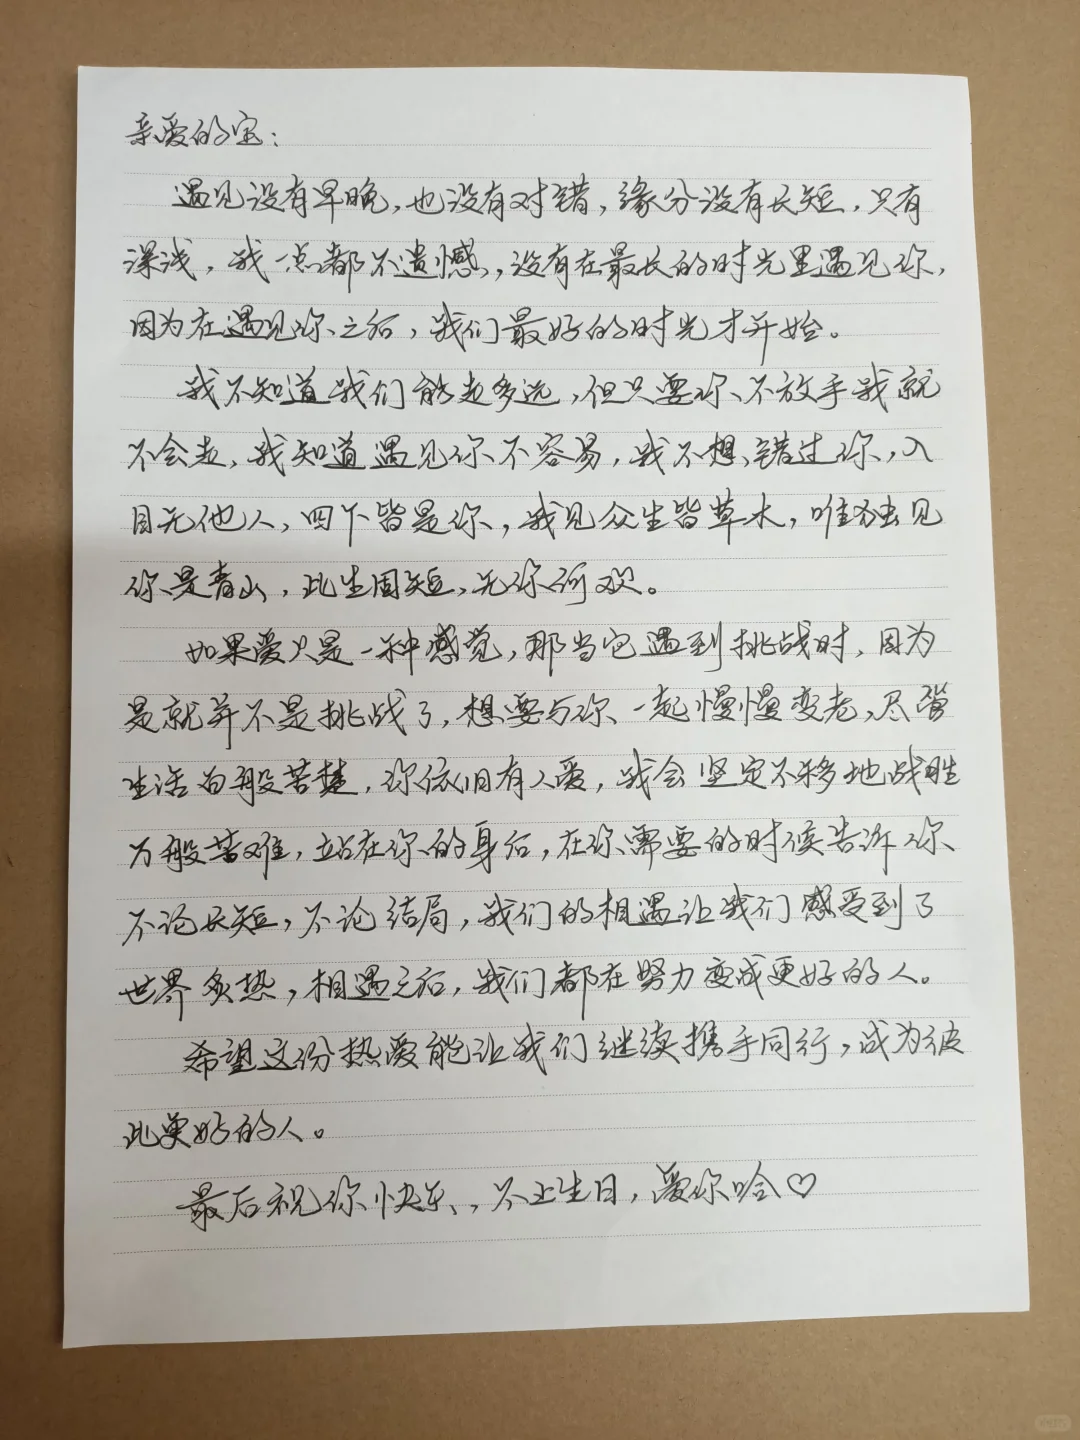 亲爱的宝：
遇见没有早晚，也没有对错，缘分没有长短，只有
深浅，我一点都不遗憾，没有在最长的时光里遇见你，
因为在遇见你之后，我们最好的时光才开始。
我不知道我们能走多远，但只要你不放手我就
不会走，我知道遇见你不容易，我不想错过你，入
目无他人，四下皆是你，我见众生皆草木，唯独见
你是青山，此生固短，无你何欢。
如果爱只是一种感觉，那当它遇到挑战时，因为
是就并不是挑战了，想要与你一起慢慢变老，尽管
生活百般苦楚，你依旧有人爱，我会坚定不移地战胜
万般苦难，站在你的身后，在你需要的时候告诉你
不论长短，不论结局，我们的相遇让我们感受到了
世界炙热，相遇之后，我们都在努力变成更好的人。
希望这份热爱能让我们继续携手同行，成为彼
此更好的人。
最后祝你快乐，不止生日，爱你哈♡